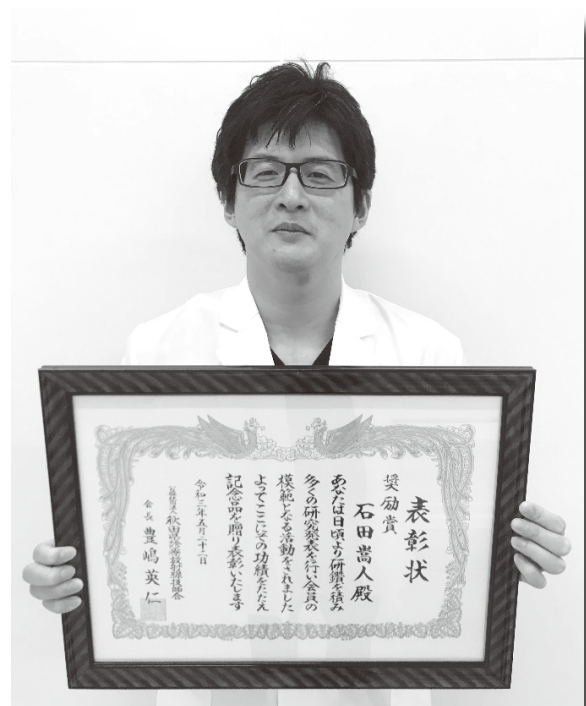 表彰状
奨励賞
石田嵩人殿
あなたは日頃より研鑽を積み
多くの研究発表を行い会員の
模範となる活動をされました
よってここにその功績をたたえ
記念品を贈り表彰いたします
令和三年五月二十二日
公益社団法人 秋田県診療放射線技師会
会長 豊嶋英仁